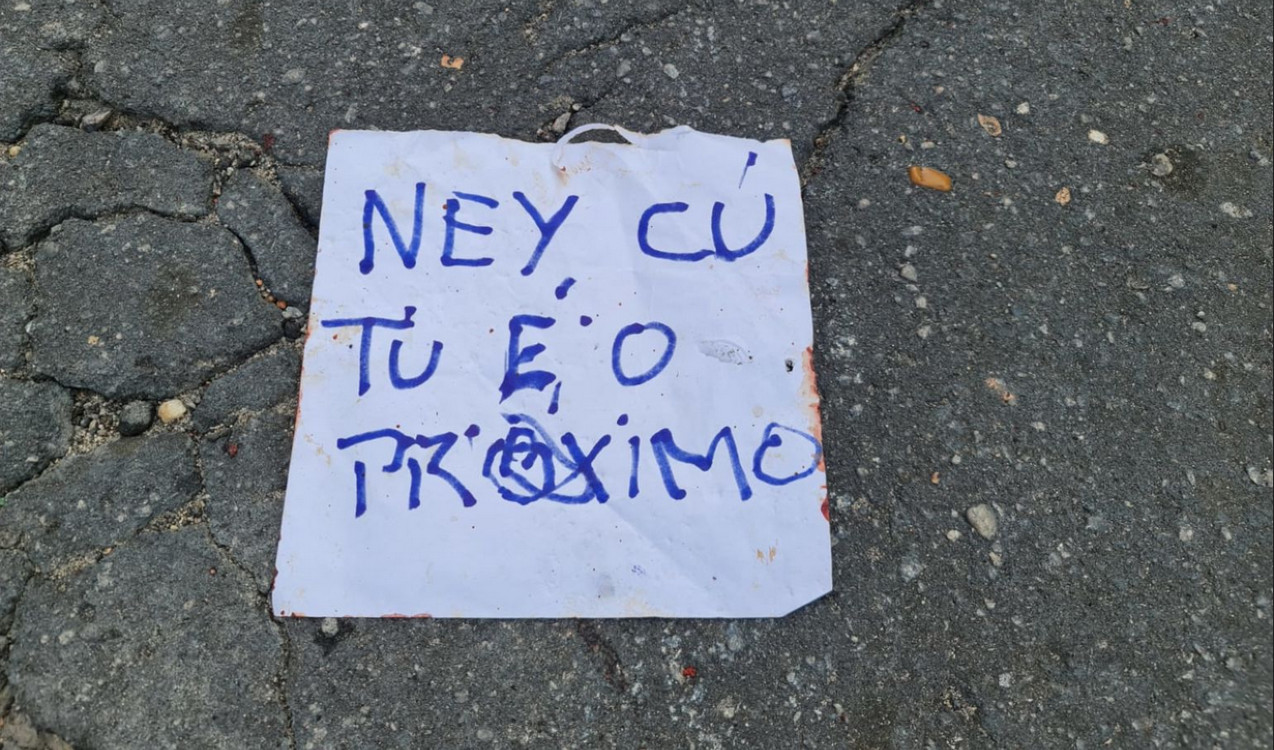 NEY, CÚ
TU É O
PRÓXIMO